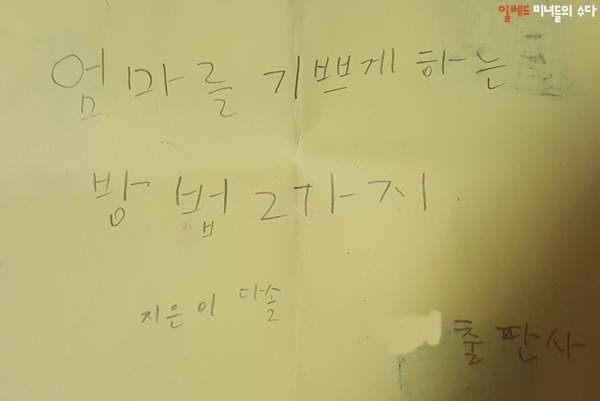 일레드 미녀들의 수다
엄마를 기쁘게 하는
방법 2가지.
지은이 다솔
출판사